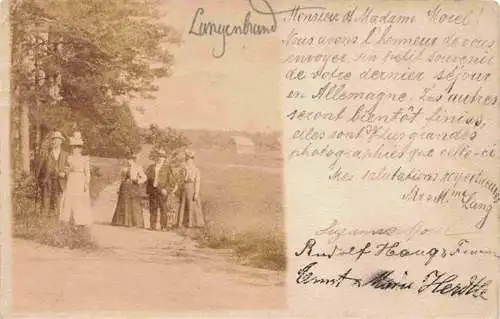 Langenbrand
Monsieur & Madame Morel!
Nous avons l'honneur de vous
envoyer un petit souvenir
de votre dernier séjour
en Allemagne. Les autres
seront bientôt finis,
elles sont plus grandes
photographies que celle-ci
Mes salutations respectueuses
Mr & Mme Lang
Rudolf Haug
Ernst Marie Herdtle